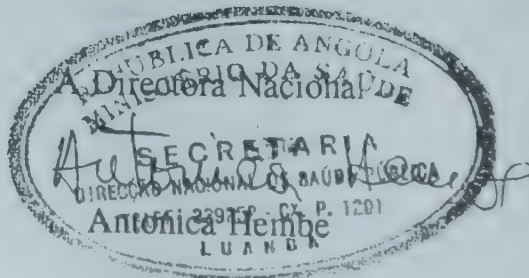 REPÚBLICA DE ANGOLA
MINISTÉRIO DA SAÚDE
A Directora Nacional
SECRETARIA
DIRECÇÃO NACIONAL SAÚDE
C. P. 1201
Antónica Hembe
LUANDA